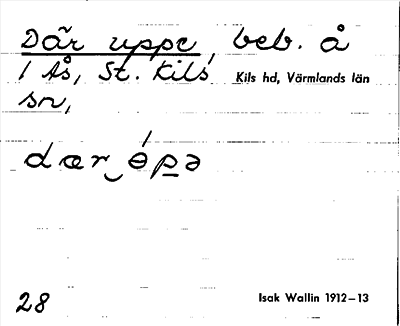 Där uppe, beb. å
1 Ås, St. Kils Kils hd, Värmlands län
sn,
dær‿ɵ́pə
28 Isak Wallin 1912–13